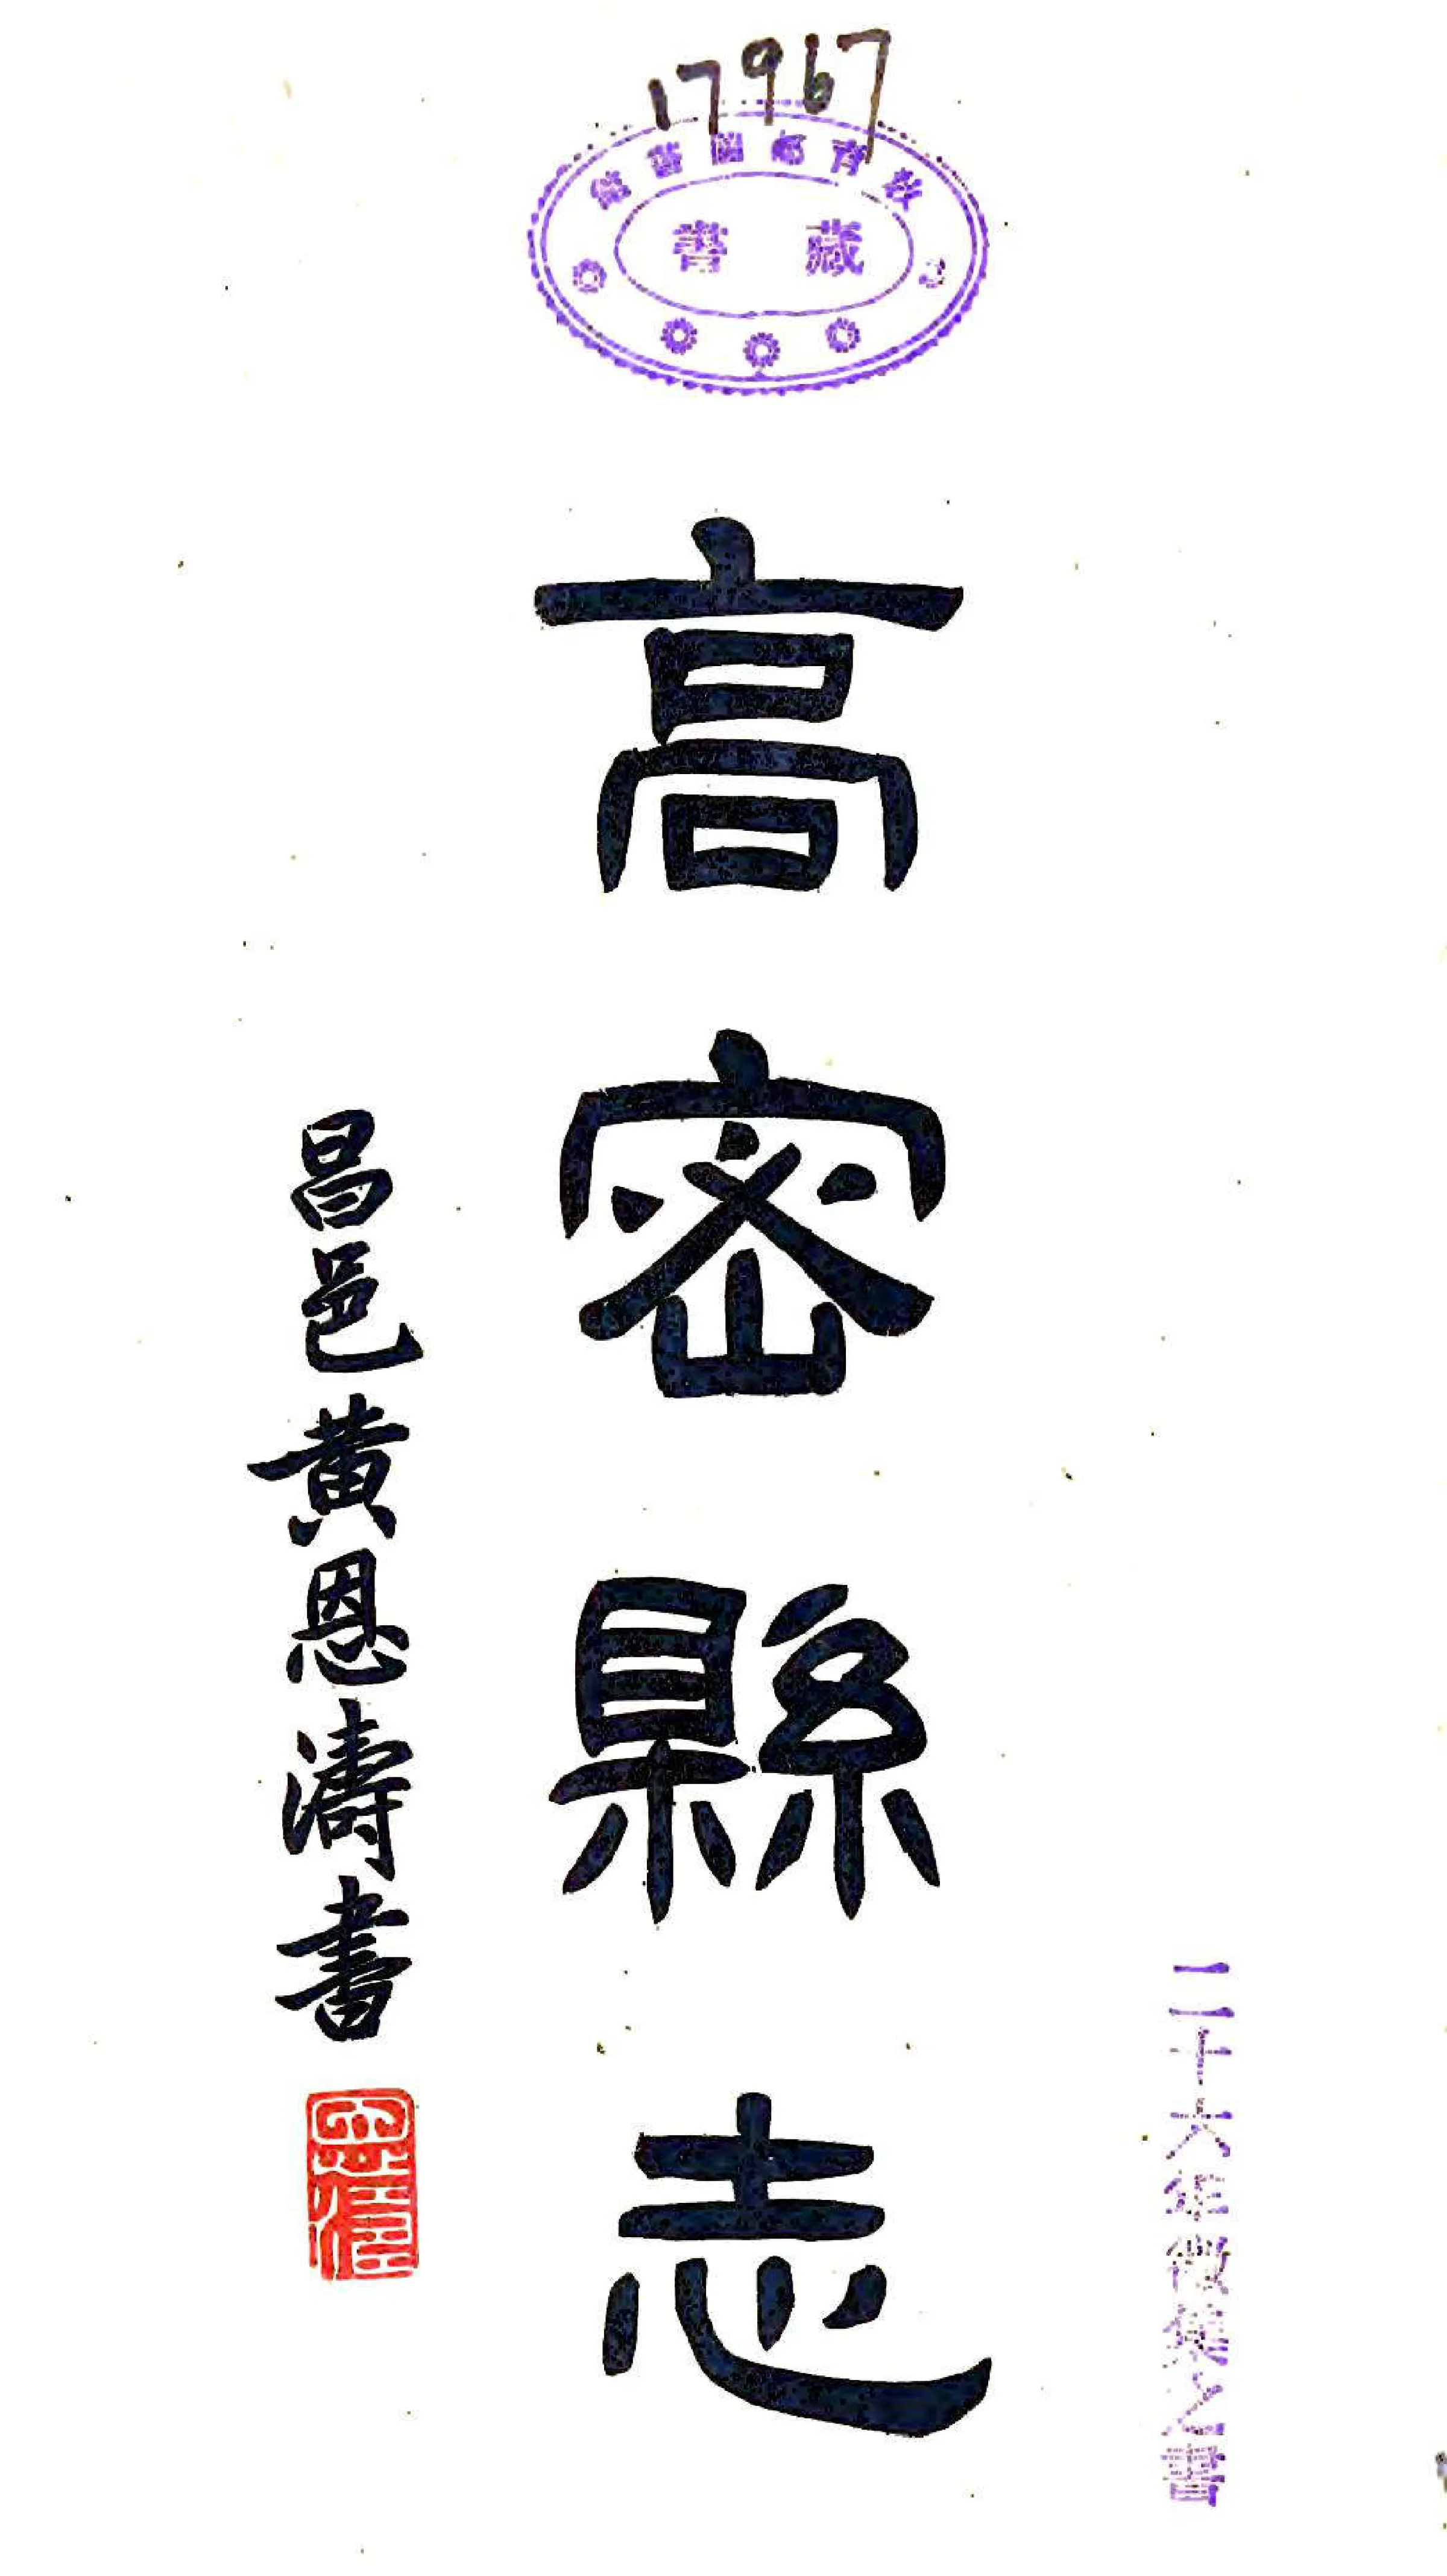 17967
教育部圖書館
藏書
二十六年徵集之書
高密縣志
昌邑黃恩濤書